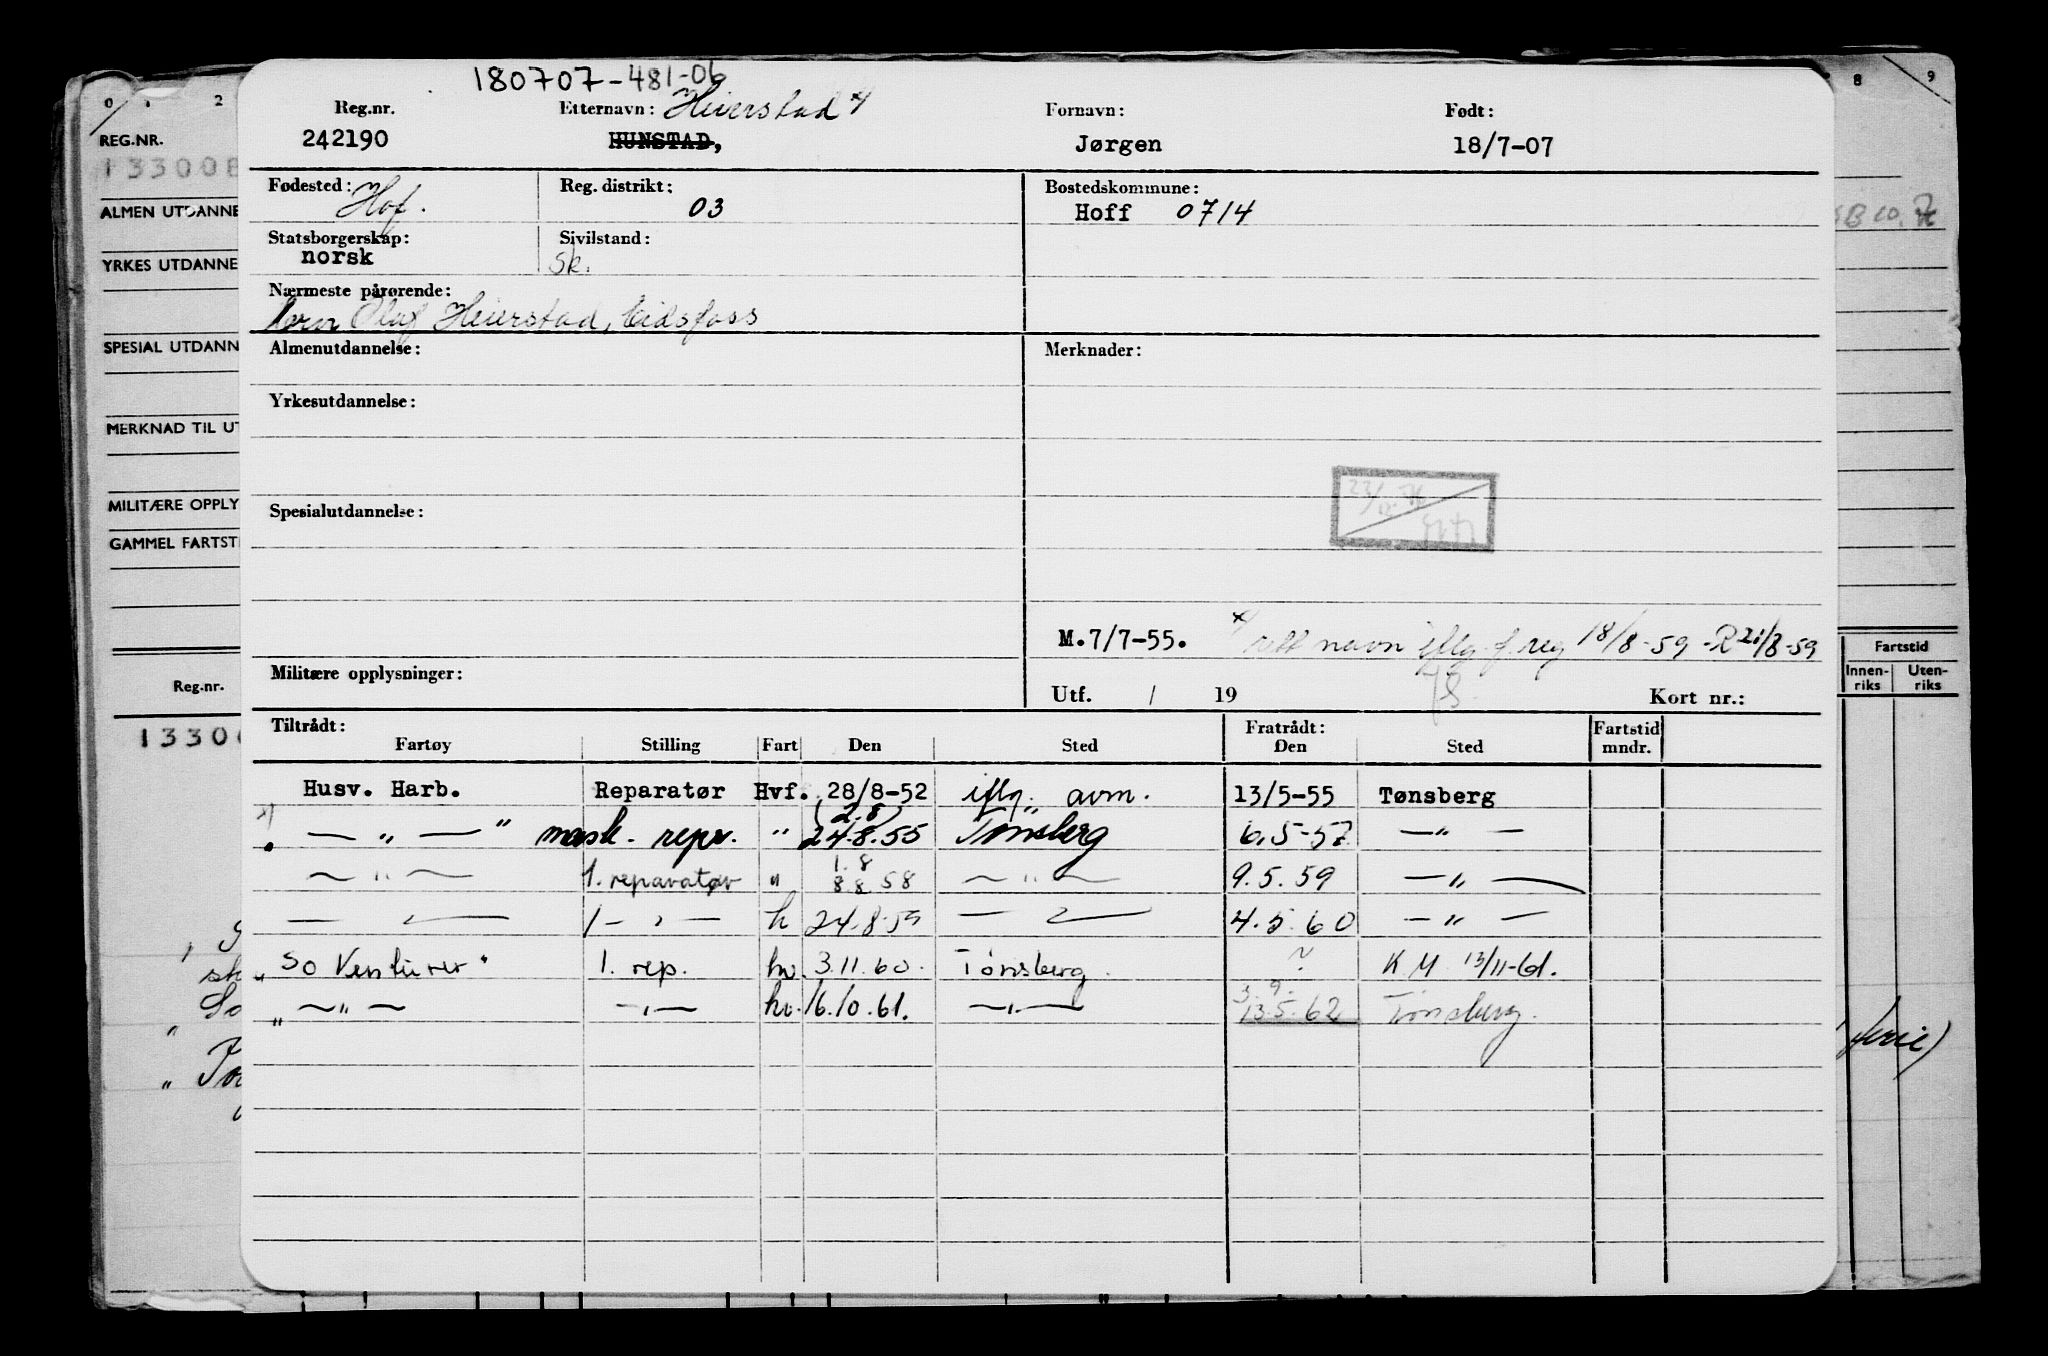 180707-481-06
Reg.nr. Etternavn: Heierstad x) Fornavn: Født:
242190 HUNSTAD, Jørgen 18/7-07
Fødested: Hof. Reg. distrikt: 03 Bostedskommune: Hoff 0714
Statsborgerskap: norsk Sivilstand: Sk.
Nærmeste pårørende:
Olaf Heierstad, Eidsfoss
Almenutdannelse: Merknader:
Yrkesutdannelse:
Spesialutdannelse:
M.7/7-55. x) rett navn iflg. f. reg 18/8-59 -R 21/8-59
Militære opplysninger: Utf. / 19 Kort nr.:
Tiltrådt: Fratrådt: Fartstid
Fartøy Stilling Fart Den Sted Den Sted mndr.
Husv. Harb. Reparatør Hvf. 28/8-52 iflg. avm. 13/5-55 Tønsberg
(2.8)
x) — " — " mask. repr. " 24.8.55 Tønsberg 6.5-57 — " —
1.8
— " — 1. reparatør " 8.8.58 — " — 9.5.59 — " —
— " — 1 — " — h 24.8.59 — " — 4.5.60 — " —
" So Venturer" 1. rep. hv. 3.11.60. Tönsberg. ? K.M. 13/11-61.
3.9.
" — " — — " — hv. 16.10.61. — " — 13.5.62 Tönsberg.
0 1 2
REG.NR.
133008
ALMEN UTDANNE
YRKES UTDANNE
SPESIAL UTDANN
MERKNAD TIL UT
MILITÆRE OPPLY
GAMMEL FARTSTI
Reg.nr.
1330
8 9
Fartstid
Innen-riks Uten-riks
ferie)